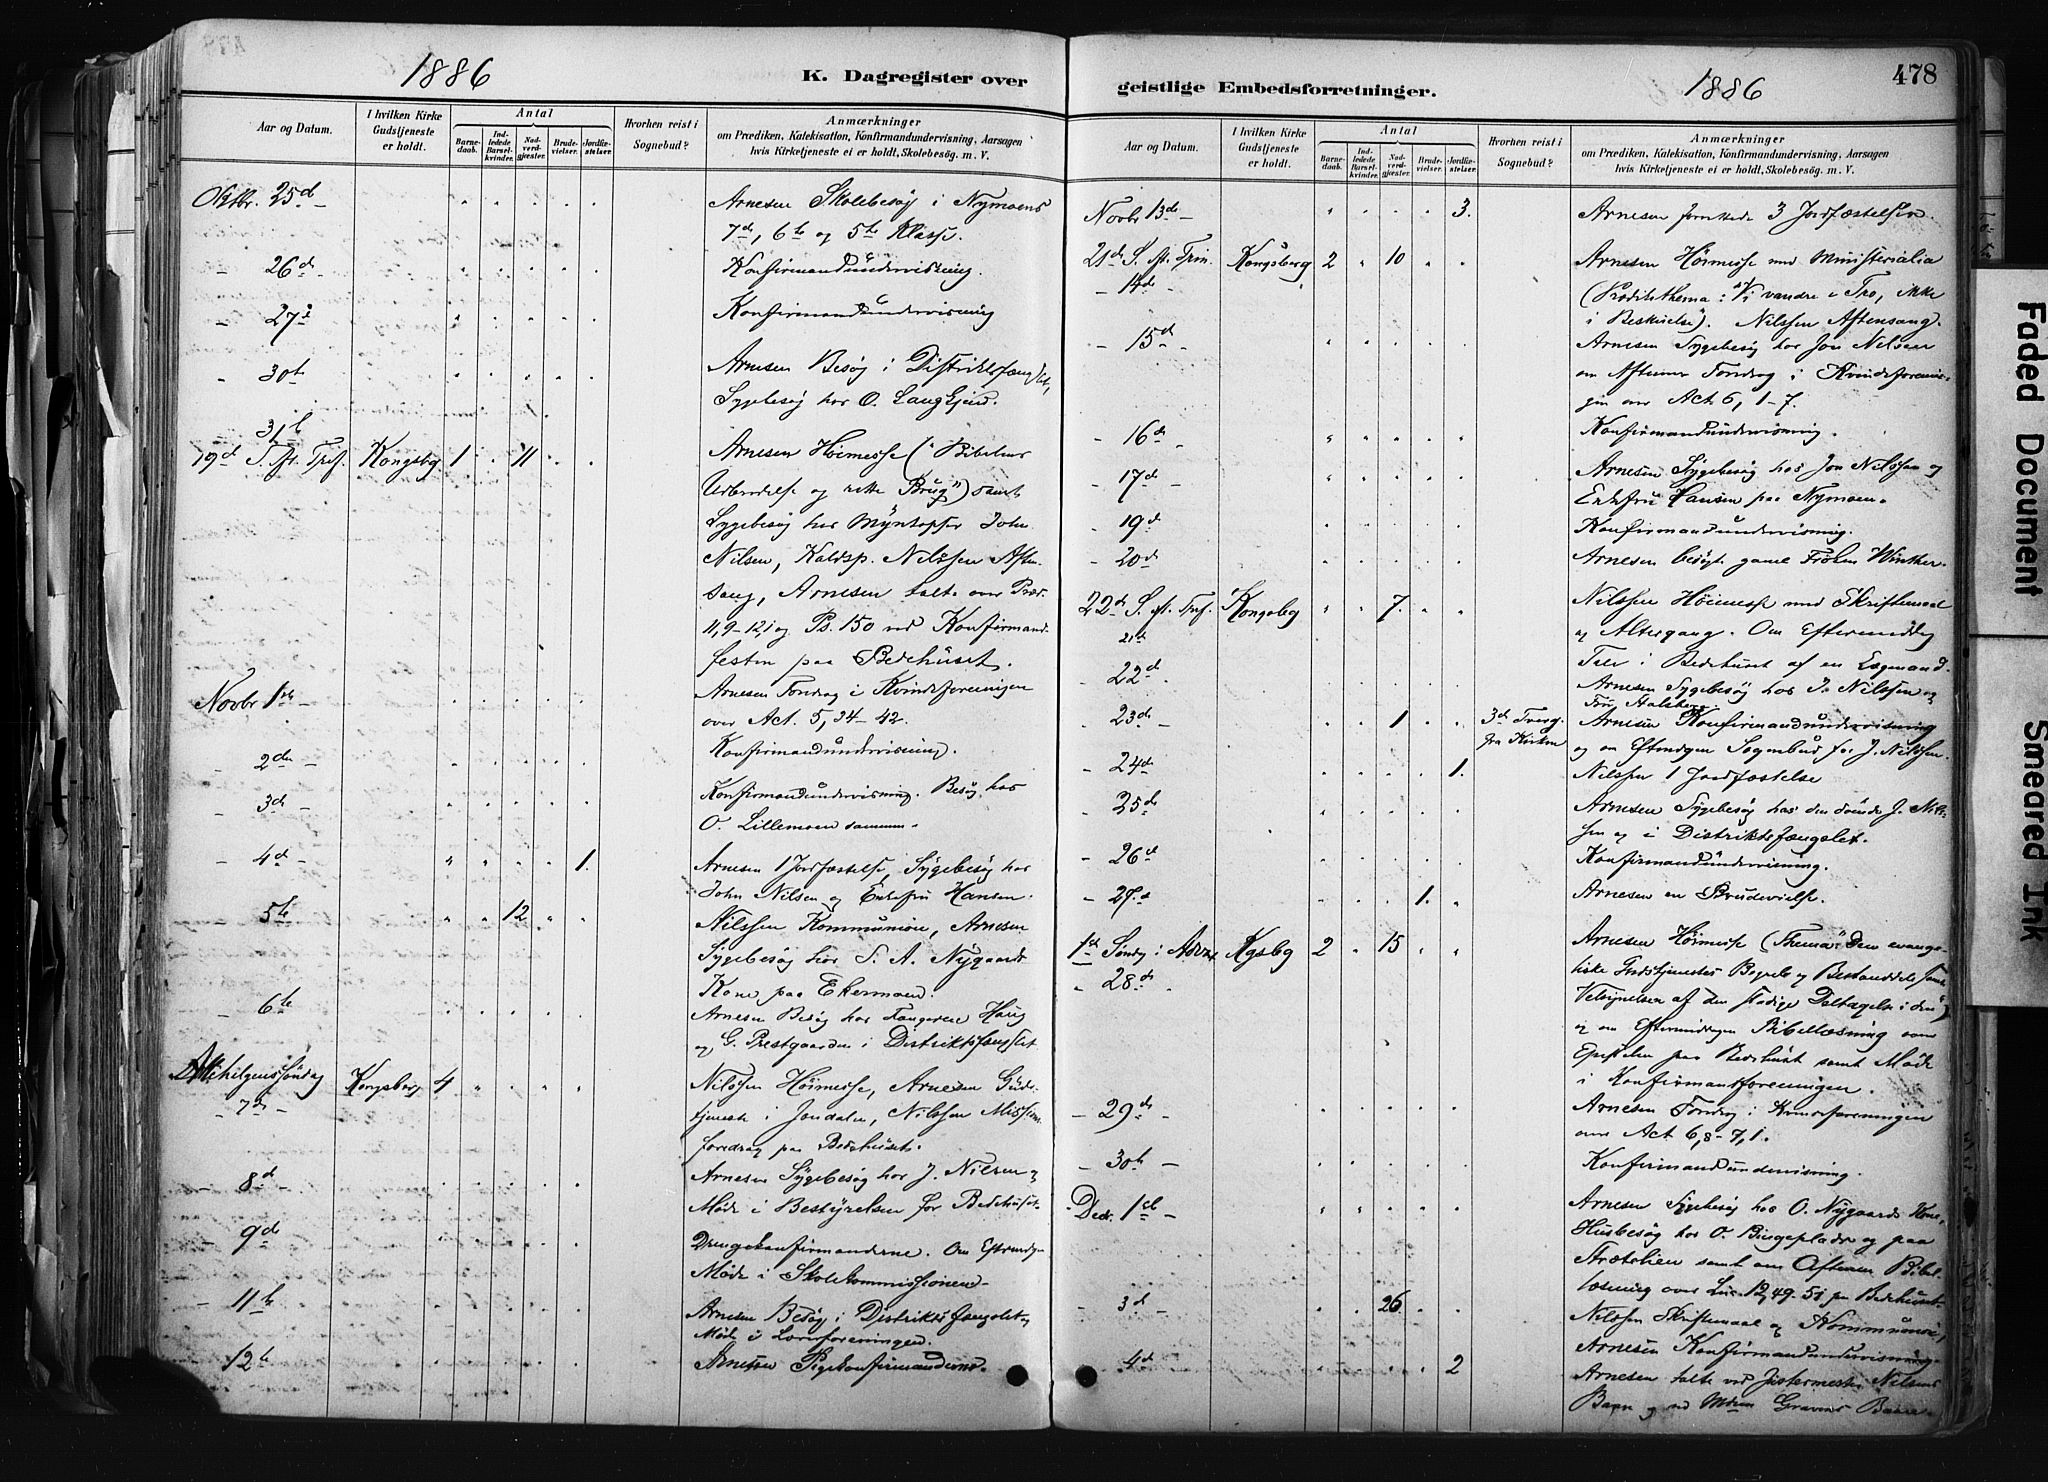 1886
K. Dagregister over
Aar og Datum.
I hvilken Kirke Gudstjeneste er holdt.
Antal
Barnedaab.
Indledede Barselkvinder.
Nadverdgjæster.
Brudevielser.
Jordfæstelser.
Hvorhen reist i Sognebud?
Anmærkninger
om Prædiken, Katekisation, Konfirmandundervisning, Aarsagen
hvis Kirketjeneste ei er holdt, Skolebesøg. m. V.
Oktbr. 25d - Arnesen Skolebesøg i Nymoens
7d, 6te og 5te Klasse.
- 26d Konfirmandundervisning.
- 27d Konfirmandundervisning
- 30te Arnesen Besøg i Distriktsfængslet,
Sygebesøg hos O. Langkjend.
31te
19d S. ft. Trif. Kongsbg 1 11 Arnesen Høimesse ("Bibelens
Udbredelse og rette Brug") samt
Sygebesøg hos Myntopsr John
Nilsen, Nilssen Aften-
sang, Arnesen talte over Præd.
11,9-12,1 og Ps. 150 ved Konfirmand-
festen paa Bedehuset.
Novbr 1ste - Arnesen Foredrag i Kvindeforeningen
over Act. 5, 34-42.
- 2den - Konfirmandundervisning.
- 3die Konfirmandundervisning. Besøg hos
O. Lillemoen sammen.
- 4d - 1. Arnesen 1 Jordfæstelse, Sygebesøg hos
John Nilsen og Enkefru Hansen.
5te 12 Nilssen Kommunion, Arnesen
Sygebesøg hos S. A. Nygaards
Kone paa Ekermoen.
6te Arnesen Besøg hos Fangerne Haug
og G. Prestgaarden i Distriktsfængslet
Allehelgenssøndag Kongsberg 4 Nilssen Høimesse, Arnesen Guds-
- 7de - tjeneste i Jondalen, Nilssen Missions-
foredrag paa Bedehuset.
- 8d - Arnesen Sygebesøg hos J. Nilsen og
Møde i Bestyrelsen for Bedehuset.
9d Drengekonfirmanderne. Om Eftermdgen
Møde i Skolekommissionen.
- 11te Arnesen Besøg i Distriktsfængslet og
Møde i Lærerforeningen.
- 12te Arnesen Pigekonfirmanderne.
geistlige Embedsforretninger.
1886
478
Aar og Datum.
I hvilken Kirke Gudstjeneste er holdt.
Antal
Barnedaab.
Indledede Barselkvinder.
Nadverdgjæster.
Brudevielser.
Jordfæstelser.
Hvorhen reist i Sognebud?
Anmærkninger
om Prædiken, Katekisation, Konfirmandundervisning, Aarsagen
hvis Kirketjeneste ei er holdt, Skolebesøg. m. V.
Novbr 13de - 3. Arnesen forrettede 3 Jordfæstelser.
21de S. ft. Trin. Kongsberg 2 10 Arnesen Høimesse med Ministerialia
- 14de (Prædithema: "Vi vandre i Tro, ikke
i Beskuelse"). Nilssen Aftensang.
- 15d - Arnesen Sygebesøg hos Jon Nilsen
om Aftenen Foredrag i Kvindeforenin-
gen over Act. 6, 1-7.
- 16de - Konfirmandundervisning.
- 17de Arnesen Sygebesøg hos Jon Nilssen og
Enkefru Hansen paa Nymoen.
- 19d Konfirmandundervisning.
- 20de Arnesen besøgt gamle Frøken Winther.
22d S. ft. Trif. Kongsbg 7. Nilssen Høimesse med Skriftemaal
21de og Altergang. Om Eftermiddag
Taler i Bedehuset af en Lægmand.
- 22de - Arnesen Sygebesøg hos J. Nilssen og
Fru
- 23de 1 3d Tverg. fra Kirken Arnesen Konfirmandundervisning
og om Eftmdgen Sognebud for J. Nilssen.
- 24de 1. Nilssen 1 Jordfæstelse
- 25de Arnesen Sygebesøg hos den døende J. Nils-
sen og i Distriktsfængslet.
- 26de Konfirmandundervisning.
- 27de 1. Arnesen en Brudevielse.
1ste Søndg i Advent Kgsbg 2 15 Arnesen Høimesse (Thema: "Den evange-
- 28de - liske Gudstjenestes Begreb og Bestanddele samt
Velsignelsen af den stadige Deltagelse i den")
og om Eftermiddagen Bibellæsning over
Epistelen paa Bedehuset samt Møde
i Konfirmantforeningen.
- 29de - Arnesen Foredrg i Kvindeforeningen
over Act 6,8-7,1.
- 30te - Konfirmandundervisning.
Decbr. 1ste - Arnesen Sygebesøg hos O. Nygaards Kone,
Husbesøg hos O. Bingeplads og paa
samt om Aftenen Bibel-
læsning over Luc. 12,49-51 paa Bedehuset.
- 3d - 26. Nilssen Skriftemaal og Kommunion,
Arnesen Konfirmandundervisning.
- 4d 2 Arnesen talte ved Justermester Nilsens
Barn og ved Gravens Barn
Faded Document
Smeared Ink